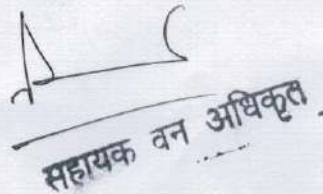 सहायक वन अधिकृत